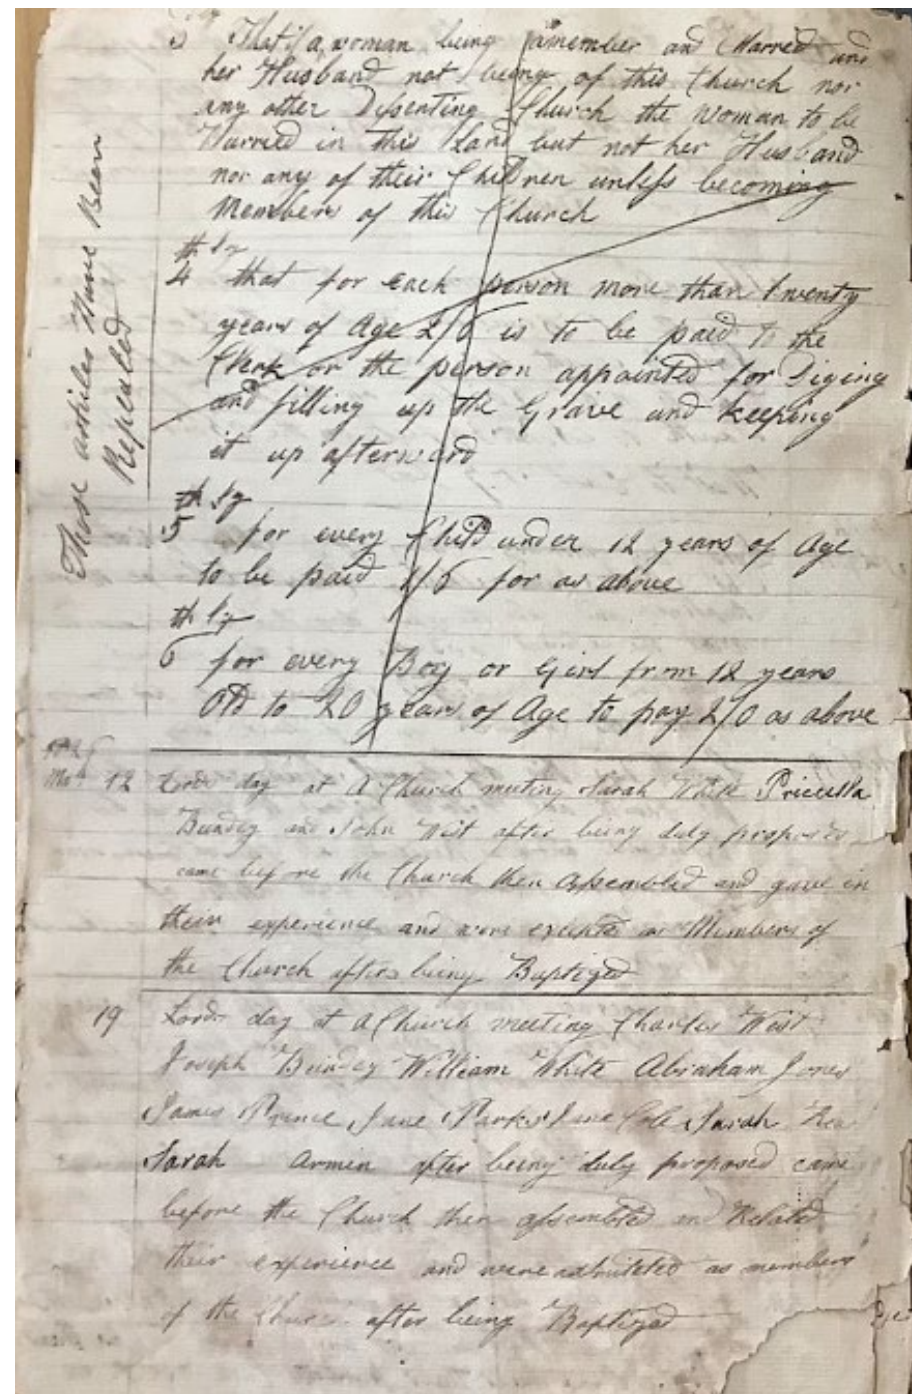 3 That if a woman being a member and Marred and
her Husband not being of this Church nor
any other Desenting Church the woman to be
Burried in this Land but not her Husband
nor any of their Children unless becoming
Members of this Church
th ly
4 that for each person more than twenty
years of Age 2/6 is to be paid to the
Clerk or the person appointed for Diging
and filling up the Grave and keeping
it up afterword
th ly
5 for every Child under 12 years of Age
to be paid 1/6 for as above
th ly
6 for every Boy or Girl from 12 years
Old to 20 years of Age to pay 2/0 as above
Those artciles Have Been
Repealed
12 Lords day at A Church meeting Sarah White Pricilla
Bundey and John West after being duly proposed
came before the Church then assembled and gave in
their experience and were excepted as Members of
the Church after being Baptized
19 Lords day at a Church meeting Charles West
Joseph Bundey William White Abraham Jones
James Prince Jane Parks Jane Cole Sarah
Sarah Armin after being duly proposed came
before the Church then assembled and Related
their experience and were admiteted as members
of the Church after being Baptized